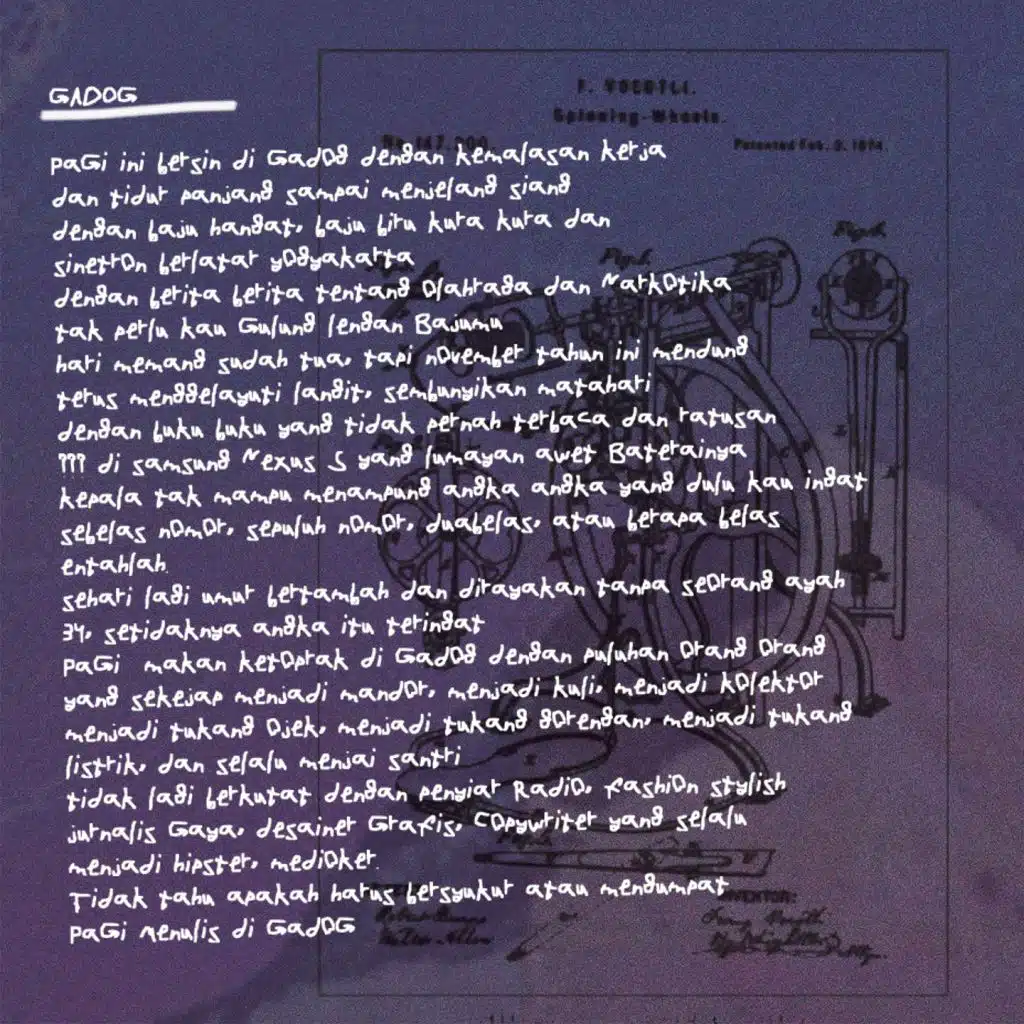 GADOG
F. VOEGTLI.
Spinning-Wheels.
No. 147,000.
Patented Feb. 3, 1874.
paGi ini bersin di Gadog dengan kemalasan kerja
dan tidur panjang sampai menjelang siang
dengan baju hangat, baju biru kura kura dan
sinetron berlatar yogyakarta
dengan berita berita tentang Olahraga dan Narkotika
tak perlu kau Gulung lengan Bajumu
hari memang sudah tua, tapi november tahun ini mendung
terus menggelayuti langit, sembunyikan matahari
dengan buku buku yang tidak pernah terbaca dan ratusan
??? di samsung Nexus S yang lumayan awet Baterainya
kepala tak mampu menampung angka angka yang dulu kau ingat
sebelas nomor, sepuluh nomor, duabelas, atau berapa belas
entahlah.
sehari lagi umur bertambah dan dirayakan tanpa seorang ayah
34, setidaknya angka itu teringat
paGi makan ketoprak di Gadog dengan puluhan Orang Orang
yang sekejap menjadi mandor, menjadi kuli, menjadi kolektor
menjadi tukang Ojek, menjadi tukang gorengan, menjadi tukang
listrik, dan selalu menjai santri
tidak lagi berkutat dengan penyiar Radio, fashion stylish
jurnalis Gaya, desainer Grafis, Copywriter yang selalu
menjadi hipster, medioker.
Tidak tahu apakah harus bersyukur atau mengumpat
paGi menulis di GadOG
INVENTOR: